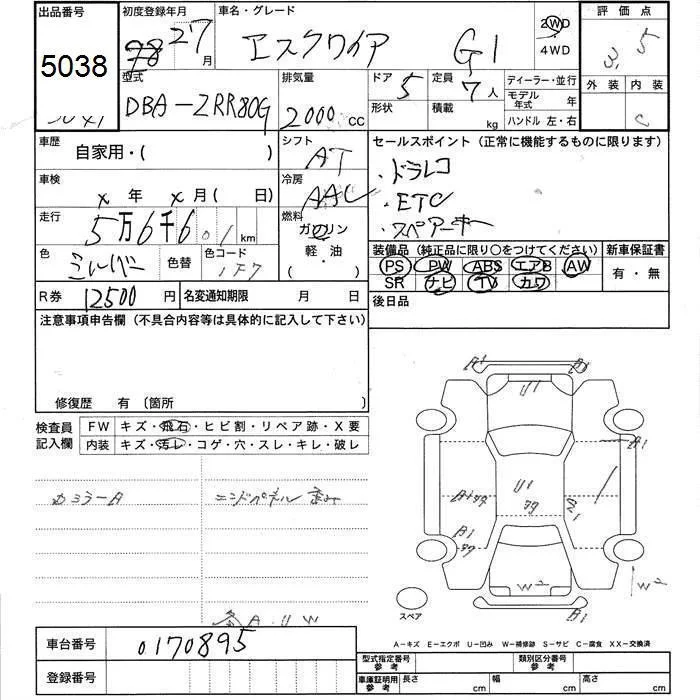 出品番号 初度登録年月 車名・グレード 評価点
5038 27 月 エスクワイア G1 2WD ・ 4WD 3.5
型式 排気量 ドア 定員 ディーラー・並行 外装 内装
DBA-ZRR80G 2000 cc 5 7人 モデル年式 年 C
形状 積載 kg ハンドル 左・右
車歴 シフト セールスポイント (正常に機能するものに限ります)
自家用・( ) AT ・ドラレコ
車検 冷房 ・ETC
x 年 x 月 ( 日) AAC ・スペアーキー
走行 燃料
5万6千6 0.1 km ガソリン
色 色替 色コード 軽・油
シルバー 1F7 ・( )
装備品 (純正品に限り〇をつけてください) 新車保証書
PS PW ABS エアB AW 有・無
SR ナビ TV カワ
R券 12500 円 名変通知期限 月 日 後日品
注意事項申告欄 (不具合内容等は具体的に記入して下さい)
修復歴 有 〔箇所 〕
検査員記入欄 FW キズ・飛石・ヒビ割・リペア跡・X要
内装 キズ・汚レ・コゲ・穴・スレ・キレ・破レ
カミラーA エンドパネル 歪み
A1 B1
U1
A1
U1
B1
W2 W2
B1
スペア
各A・U W
A-キズ E-エクボ U-凹み W-補修跡 S-サビ C-腐食 XX-交換済
車台番号 0170895
登録番号
型式指定番号 参考 類別区分番号 参考
車庫証明用 参考 長さ cm 幅 cm 高さ cm